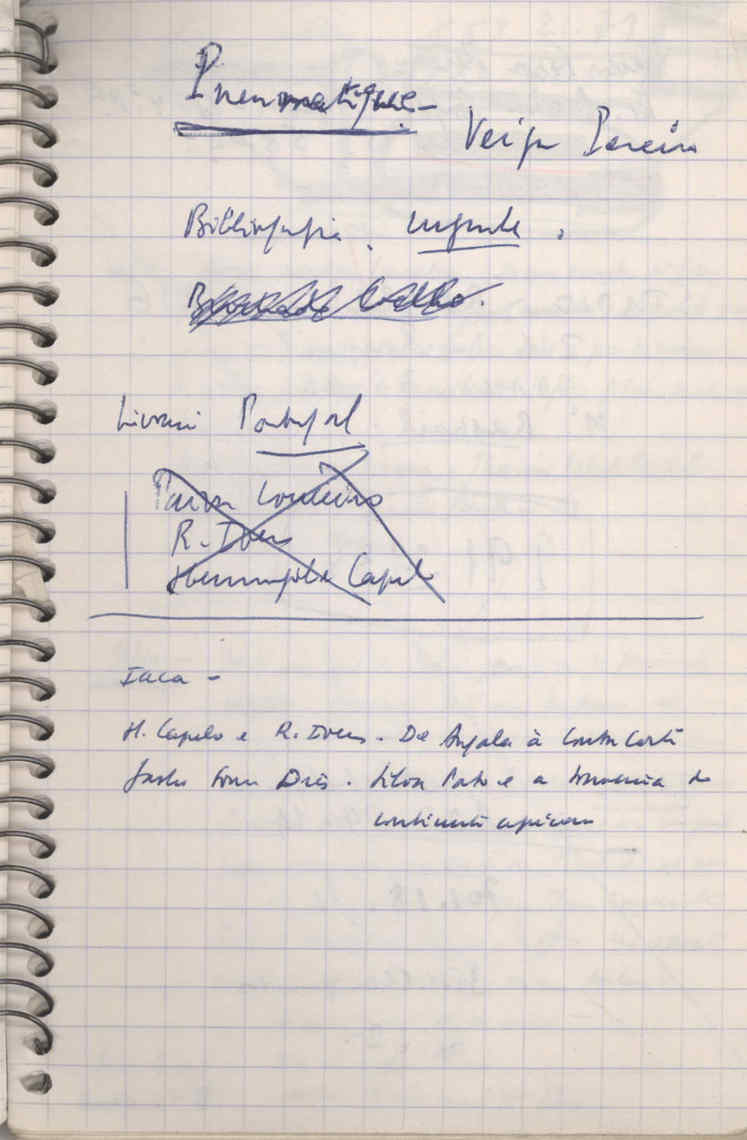 Pneumatique -
Veiga Pereira
Bibliografia. urgente.
Livraria Portugal
Paiva Couceiro
R. Ivens
Hermenegildo Capelo
IACA -
H. Capelo e R. Ivens - De Angola à Contra Costa
Gastão Sousa Dias - Silva Porto e a travessia do
continente africano